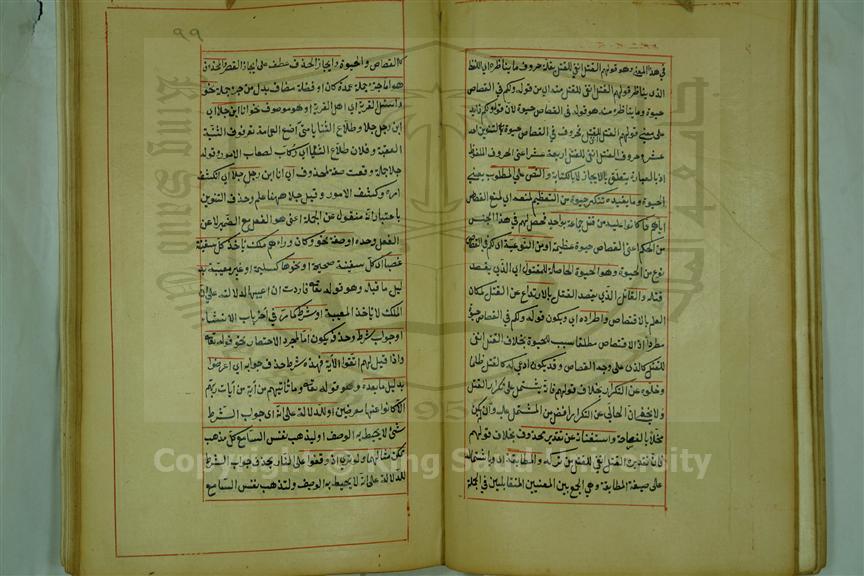 في هذا المعنى وهو قولهم القتل انفى للقتل بقلة حروف ما يناظره اى اللفظ
الذى يناظر قولهم القتل انفى للقتل منه اى من قوله ولكم في القصاص
حيوة وما يناظره منه هو قوله في القصاص حيوة لان قوله ولكم زائد
على معنى قولهم القتل انفى للقتل فحروف في القصاص حيوة مع التنوين احد
عشر وحروف القتل انفى للقتل اربعة عشر اعنى الحروف الملفوظة
اذ بالعبارة يتعلق بالايجاز لا بالكتابة والنص على المطلوب يعنى
الحيوة وما يفيده تنكير حيوة من التعظيم لمنعه اى لمنع القصاص
اياهم عما كانوا عليه من قتل جماعة بواحد فحصل لهم في هذا الجنس
من الحكم اعنى القصاص حيوة عظيمة او من النوعية اى لكم في القصاص
نوع من الحيوة وهو الحيوة الحاصلة للمقتول اى الذى يقصد
قتله والقاتل الذى يقصد القتل بالارتداع عن القتل لمكان
العلم بالاقتصاص واطراده اى ويكون قوله ولكم في القصاص حيوة
مطردا اذ الاقتصاص مطلقا سبب للحيوة بخلاف القتل انفى
للقتل كالذى على وجه القصاص وقد يكون ادعى له كالقتل ظلما
وخلوه عن التكرار بخلاف قولهم فانه يشتمل على تكرار القتل
ولا يخفى ان الخالي عن التكرار افضل من المشتمل عليه وان لم يكن
مخلا بالفصاحة واستغنائه عن تقدير محذوف بخلاف قولهم
فان تقديره القتل انفى للقتل من تركه والمطابقة اى وباشتماله
على صيغة المطابقة وهي الجمع بين المعنيين المتقابلين في الجملة
٩٩
كالقصاص والحيوة وايجاز الحذف عطف على ايجاز القصر والمحذوف
هو اما جزء جملة عمدة كان او فضلة مضاف بدل من جزء جملة نحو
واسئل القرية اى اهل القرية او هو موصوف نحو انا ابن جلا اى
ابن رجل جلا وطلاع الثنايا متى اضع العمامة تعرفونى الثنية
العقبة وفلان طلاع الثنايا اى ركاب لصعاب الامور وقوله
جلا جملة وقعت صفة لمحذوف اى انا ابن رجل جلا اى انكشف
امره او كشف الامور وقيل جلا ههنا علم وحذف التنوين
باعتبار انه منقول عن الجملة اعنى هو الفعل مع الضمير لا عن
الفعل وحده او صفة نحو وكان وراءهم ملك ياخذ كل سفينة
غصبا اى كل سفينة صحيحة او نحوها كسليمة او غير معيبة بد
ليل ما قبله وهو قوله تعالى فاردت ان اعيبها لدلالته على ان
الملك لا ياخذ المعيبة او شرط كما مر في آخر باب الانشاء
او جواب شرط وحذفه يكون اما لمجرد الاختصار نحو قوله تعالى
واذا قيل لهم اتقوا الآية فهذه شرط حذف جوابه اى اعرضوا
بدليل ما بعده وهو قوله تعالى وما تأتيهم من آية من آيات ربهم
الا كانوا عنها معرضين او للدلالة على انه اى جواب الشرط
شئ لا يحيط به الوصف او ليذهب نفس السامع كل مذهب
ممكن مثالهما ولو ترى اذ وقفوا على النار فحذف جواب الشرط
للدلالة على انه لا يحيط به الوصف ولتذهب نفس السامع
Copyright © King Saud University